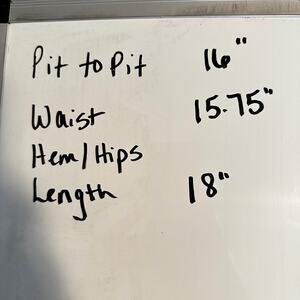 Pit to Pit 16"
Waist 15.75"
Hem/Hips
Length 18"